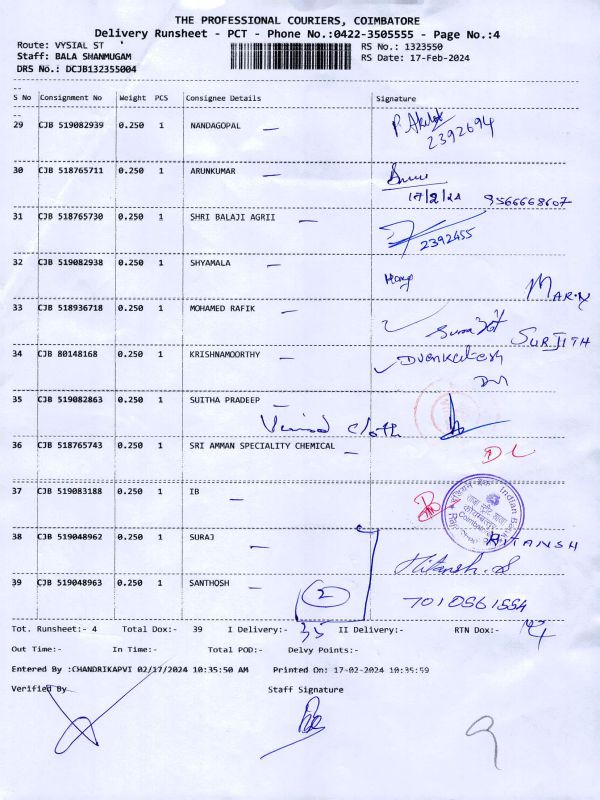 THE PROFESSIONAL COURIERS, COIMBATORE
Delivery Runsheet - PCT - Phone No.:0422-3505555 - Page No.:4
Route: VYSIAL ST RS No.: 1323550
Staff: BALA SHANMUGAM RS Date: 17-Feb-2024
DRS No.: DCJB132355004
S No Consignment No Weight PCS Consignee Details Signature
29 CJB 519082939 0.250 1 NANDAGOPAL
2392694
30 CJB 518765711 0.250 1 ARUNKUMAR
17/2/24 9566668607
31 CJB 518765730 0.250 1 SHRI BALAJI AGRII
2392455
32 CJB 519082938 0.250 1 SHYAMALA
33 CJB 518936718 0.250 1 MOHAMED RAFIK
SURJITH
34 CJB 80148168 0.250 1 KRISHNAMOORTHY
D Venkatesh
35 CJB 519082863 0.250 1 SUITHA PRADEEP
Cloth
36 CJB 518765743 0.250 1 SRI AMMAN SPECIALITY CHEMICAL
37 CJB 519083188 0.250 1 IB
Indian Bank
38 CJB 519048962 0.250 1 SURAJ
HITANSH
Hitansh.S
39 CJB 519048963 0.250 1 SANTHOSH
2
7010561554
Tot. Runsheet:- 4 Total Dox:- 39 I Delivery:- 35 II Delivery:- RTN Dox:- 4
Out Time:- In Time:- Total POD:- Delvy Points:-
Entered By :CHANDRIKAPVI 02/17/2024 10:35:50 AM Printed On: 17-02-2024 10:35:59
Verified By Staff Signature
9